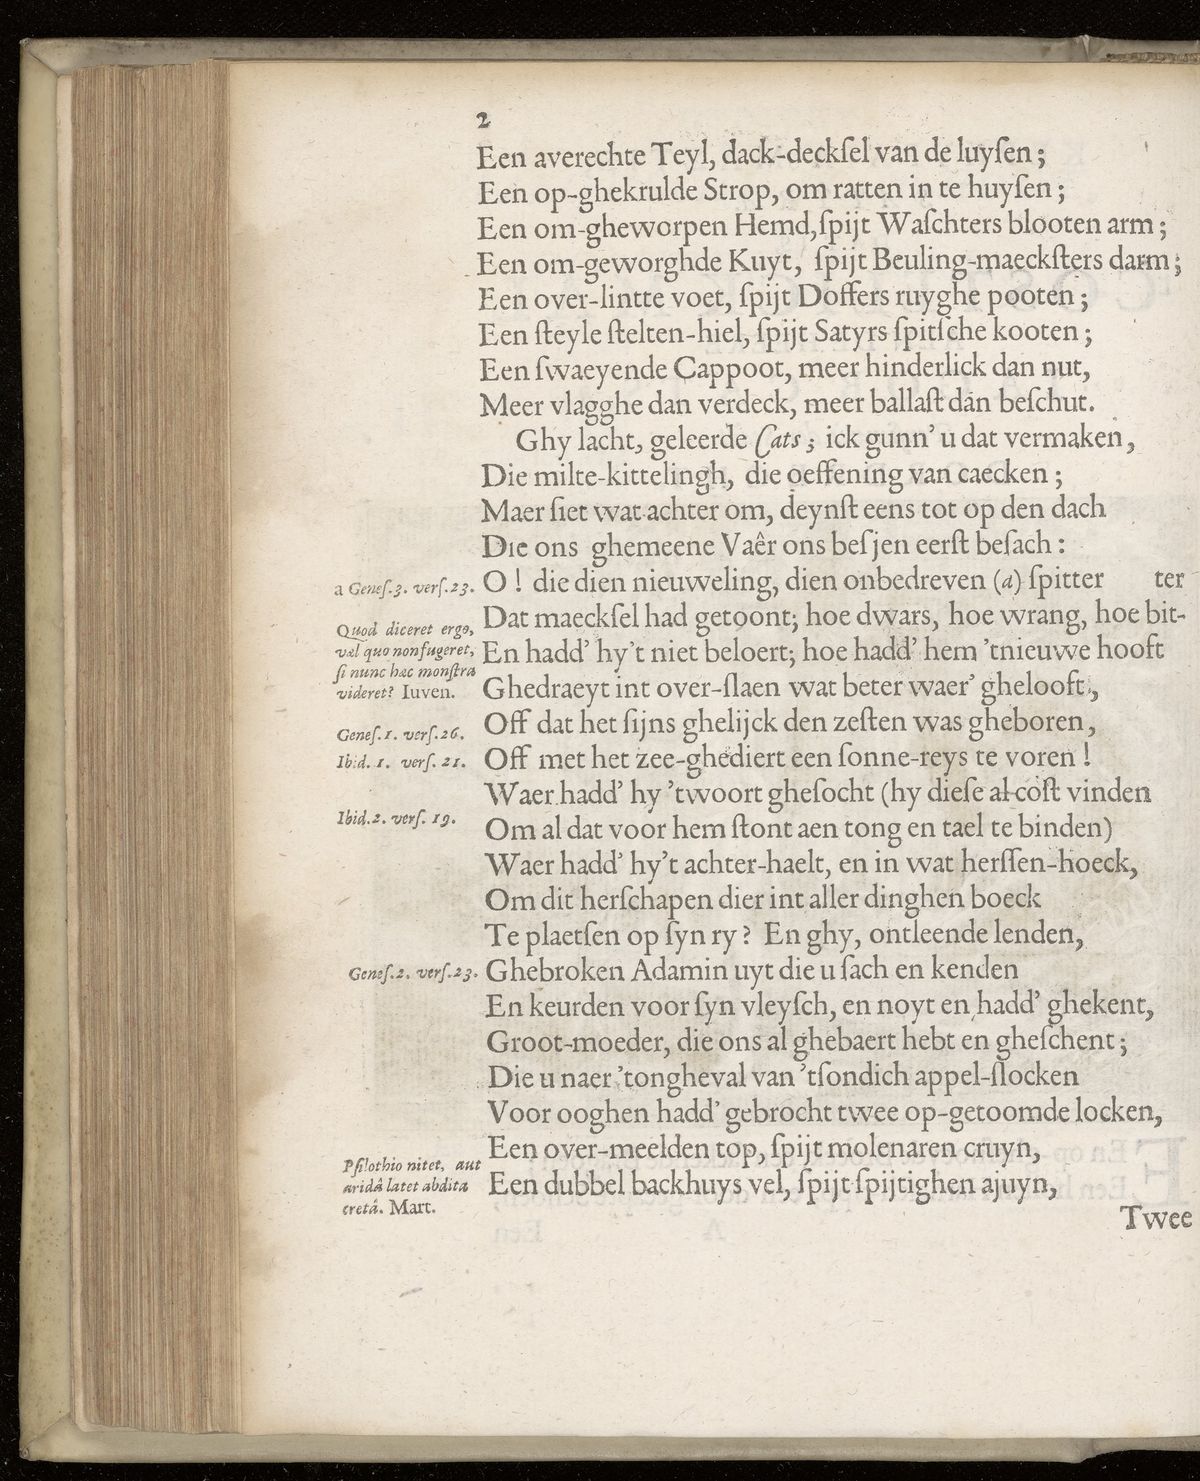 2
Een averechte Teyl, dack-deckſel van de luyſen;
Een op-ghekrulde Strop, om ratten in te huyſen;
Een om-gheworpen Hemd, ſpijt Waſchters blooten arm;
Een om-geworghde Kuyt, ſpijt Beuling-maeckſters darm;
Een over-lintte voet, ſpijt Doffers ruyghe pooten;
Een ſteyle ſtelten-hiel, ſpijt Satyrs ſpitſche kooten;
Een ſwaeyende Cappoot, meer hinderlick dan nut,
Meer vlagghe dan verdeck, meer ballaſt dan beſchut.
Ghy lacht, geleerde Cats; ick gunn' u dat vermaken,
Die milte-kittelingh, die oeffening van caecken;
Maer ſiet wat achter om, deynſt eens tot op den dach
Die ons ghemeene Vaêr ons beſjen eerſt beſach:
a Geneſ.3. verſ.23. O! die dien nieuweling, dien onbedreven (a) ſpitter ter
Dat maeckſel had getoont; hoe dwars, hoe wrang, hoe bit-
Quod diceret ergo,
vel quo non fugeret,
ſi nunc hæc monſtra
videret? Iuven.
En hadd' hy't niet beloert; hoe hadd' hem 'tnieuwe hooft
Ghedraeyt int over-ſlaen wat beter waer' ghelooft,
Geneſ.1. verſ.26. Off dat het ſijns ghelijck den zeſten was gheboren,
Ibid. 1. verſ. 21. Off met het zee-ghediert een ſonne-reys te voren!
Waer hadd' hy 'twoort gheſocht (hy dieſe al coſt vinden
Ibid.2. verſ. 19. Om al dat voor hem ſtont aen tong en tael te binden)
Waer hadd' hy't achter-haelt, en in wat herſſen-hoeck,
Om dit herſchapen dier int aller dinghen boeck
Te plaetſen op ſyn ry? En ghy, ontleende lenden,
Geneſ.2. verſ.23. Ghebroken Adamin uyt die u ſach en kenden
En keurden voor ſyn vleyſch, en noyt en hadd' ghekent,
Groot-moeder, die ons al ghebaert hebt en gheſchent;
Die u naer 'tongheval van 'tſondich appel-ſlocken
Voor ooghen hadd' gebrocht twee op-getoomde locken,
Een over-meelden top, ſpijt molenaren cruyn,
Pſilothio nitet, aut
aridâ latet abdita
cretâ. Mart.
Een dubbel backhuys vel, ſpijt ſpijtighen ajuyn,
Twee